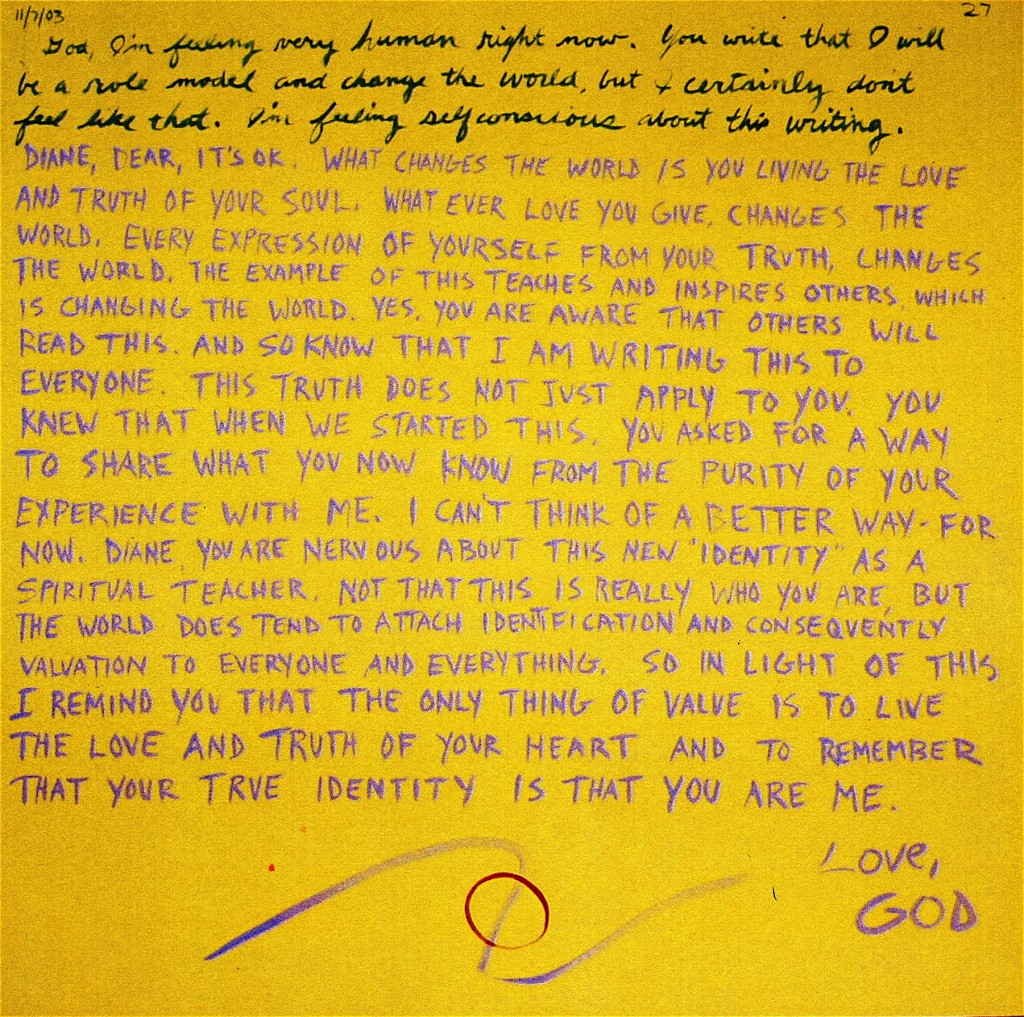 11/7/03
27
God, I'm feeling very human right now. You write that I will
be a role model and change the world, but I certainly don't
feel like that. I'm feeling selfconscious about this writing.
DIANE, DEAR, IT'S OK. WHAT CHANGES THE WORLD IS YOU LIVING THE LOVE
AND TRUTH OF YOUR SOUL. WHAT EVER LOVE YOU GIVE, CHANGES THE
WORLD. EVERY EXPRESSION OF YOURSELF FROM YOUR TRUTH, CHANGES
THE WORLD. THE EXAMPLE OF THIS TEACHES AND INSPIRES OTHERS, WHICH
IS CHANGING THE WORLD. YES, YOU ARE AWARE THAT OTHERS WILL
READ THIS. AND SO KNOW THAT I AM WRITING THIS TO
EVERYONE. THIS TRUTH DOES NOT JUST APPLY TO YOU. YOU
KNEW THAT WHEN WE STARTED THIS. YOU ASKED FOR A WAY
TO SHARE WHAT YOU NOW KNOW FROM THE PURITY OF YOUR
EXPERIENCE WITH ME. I CAN'T THINK OF A BETTER WAY - FOR
NOW. DIANE, YOU ARE NERVOUS ABOUT THIS NEW "IDENTITY" AS A
SPIRITUAL TEACHER. NOT THAT THIS IS REALLY WHO YOU ARE, BUT
THE WORLD DOES TEND TO ATTACH IDENTIFICATION AND CONSEQUENTLY
VALUATION TO EVERYONE AND EVERYTHING. SO IN LIGHT OF THIS
I REMIND YOU THAT THE ONLY THING OF VALUE IS TO LIVE
THE LOVE AND TRUTH OF YOUR HEART AND TO REMEMBER
THAT YOUR TRUE IDENTITY IS THAT YOU ARE ME.
LOVE,
GOD